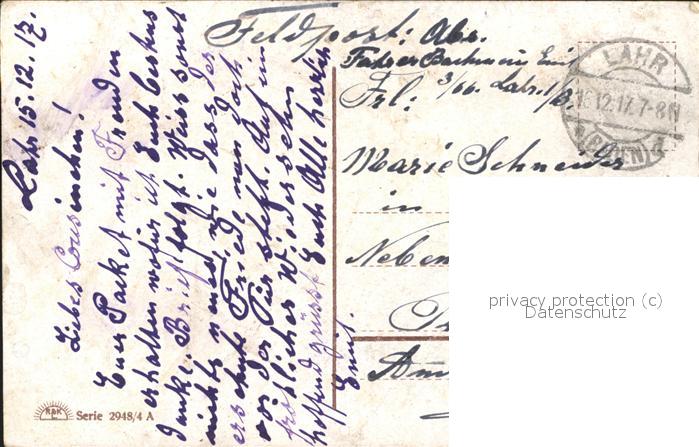 Lahr 15.12.17.
Liebes Cousinchen!
Euer Packet mit Freuden
erhalten wofür ich Euch bestens
danke. Brief folgt. Weis sonst
nichts neues, wie dass der
ersehnte Friede nun doch
vor der Tür steht. Auf ein
fröhlicher Wiedersehn
hoffend grüsst Euch Alle herzlich
Emil.
Feldpost: Abs.
Fahrer Bachmann Emil
3/66. Lahr i/B.
Frl:
Marie Schneider
in
Neben
Am
LAHR
16.12.17.7-8N
(BADEN)
R&K
L
Serie 2948/4 A
privacy protection (c)
Datenschutz